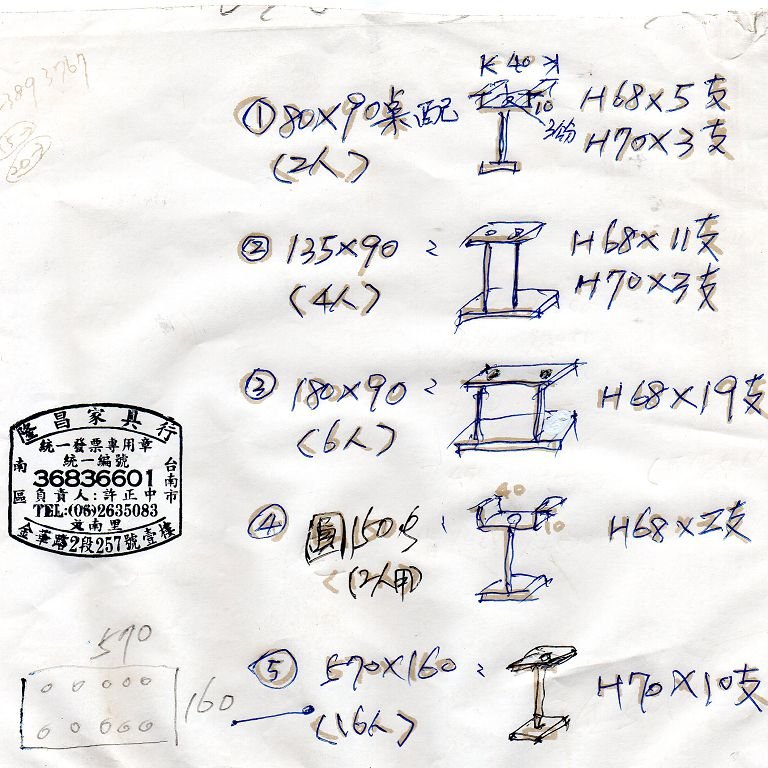 3893767
202
K 40 X
① 80×90桌配
10
H68×5支
3分
H70×3支
(2人)
② 135×90 :
H68×11支
(4人)
H70×3支
③ 180×90 :
H68×19支
(6人)
隆昌家具行
統一發票專用章
統一編號
36836601
負責人:許正中
TEL:(06)2635083
南區
台南市
金華路2段257號壹樓
④ 圓160
40
10
H68×2支
(2人用)
⑤ 570×160 :
H70×10支
(16人)
570
160